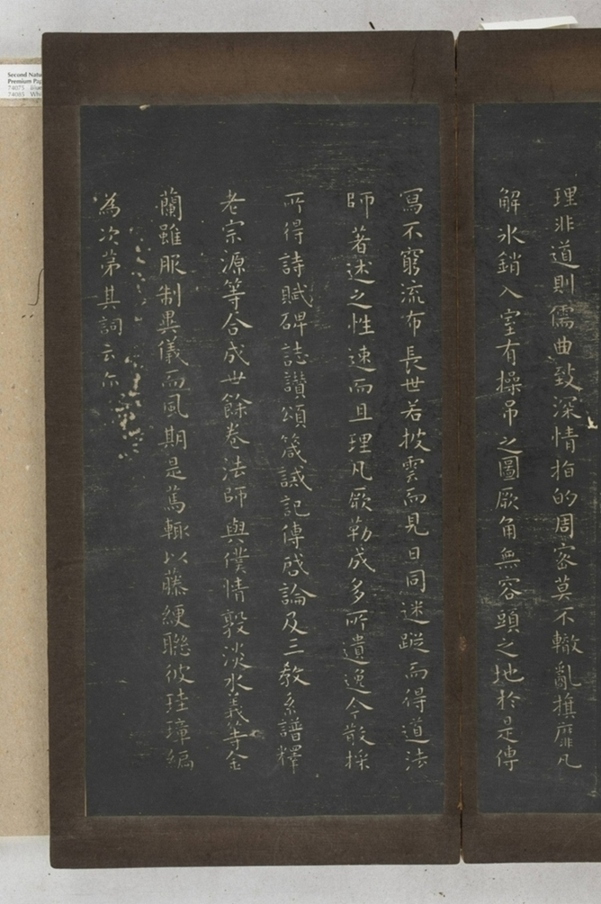 理非道則儒曲致深情指的周密莫不轍亂旗靡凡
解氷銷入室有操吊之圖厥角無容頭之地於是傳
寫不窮流布長世若披雲而見日同迷蹤而得道法
師著述之性速而且理凡厥勒成多所遺逸今散採
所得詩賦碑誌讚頌箴誡記傳啓論及三教系譜釋
老宗源等合成卅餘卷法師與僕情敦淡水義等金
蘭雖服制異儀而風期是篤輒以藤綆聮彼珪璋編
為次第其詞云尒
Second Natu
Premium Pap
74075
74085